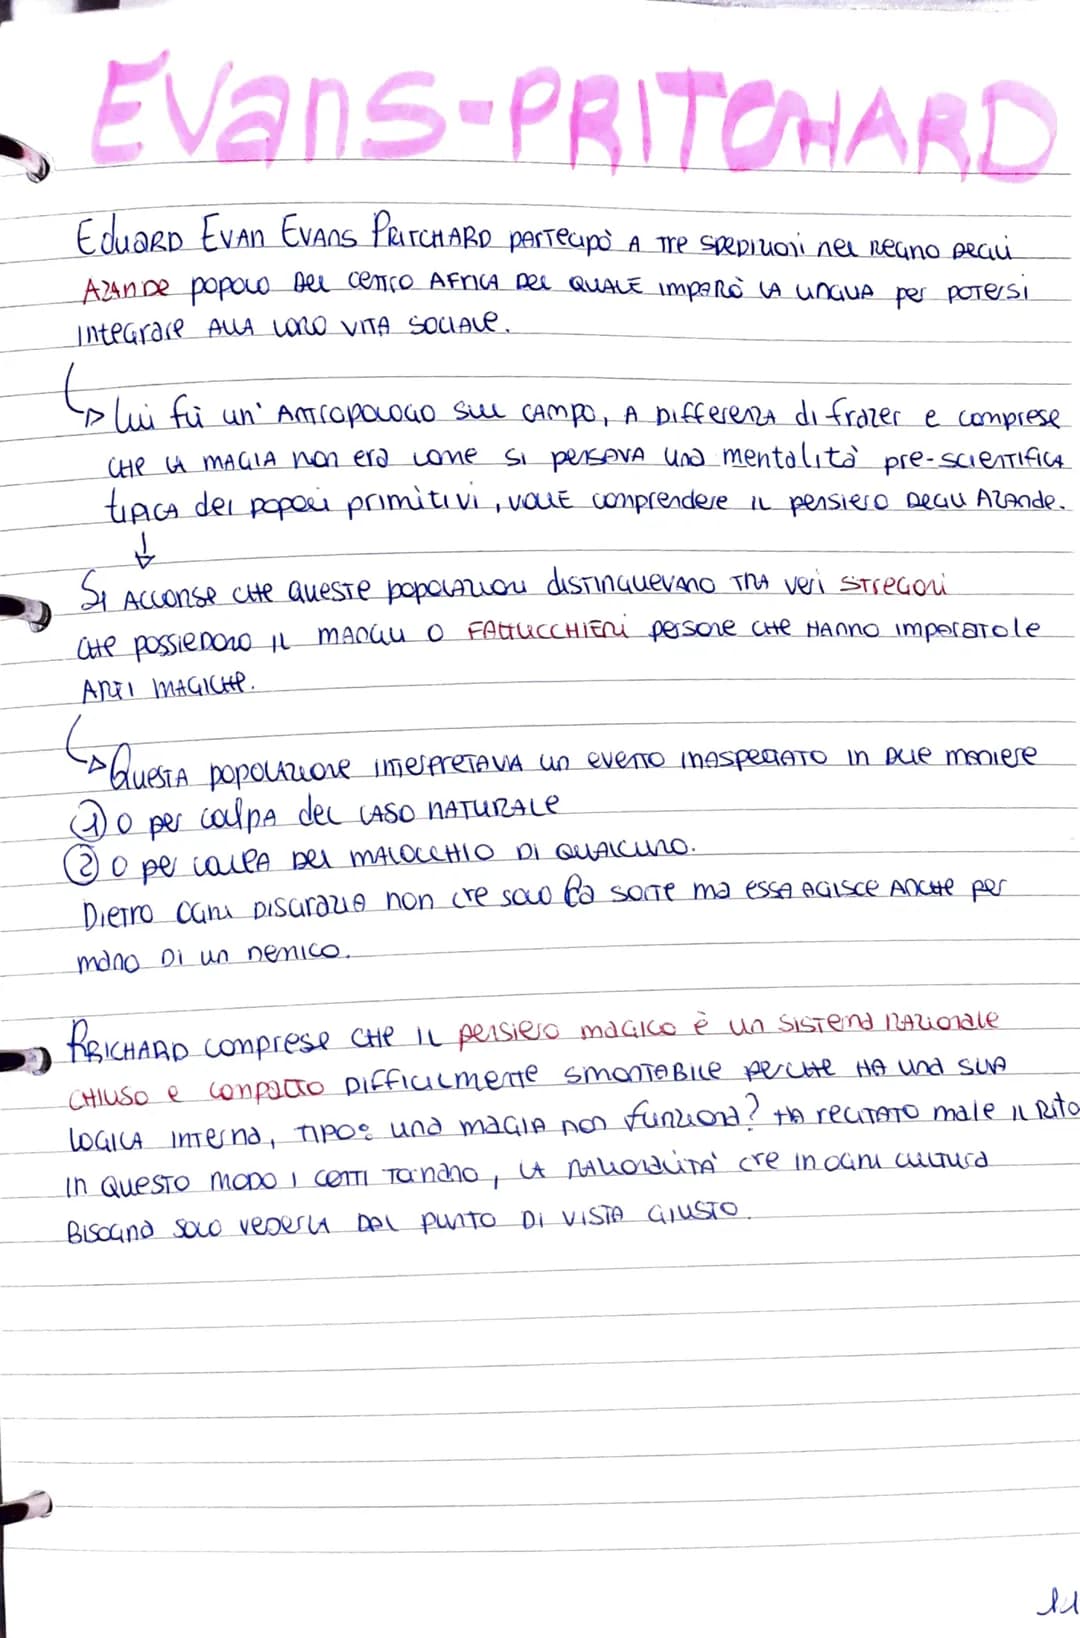 Evans-PRITCHARD
EduaRD EVAN EVANS PRITCHARD partecipò A tre spedizioni nel Regno degli
AZANDE popolo del centro AFRICA del QUALE imparò la lingua per potersi
integrare ALLA loro VITA SOCIALE.
lui fù un' Antropologo sul campo, A differenza di frazer e comprese
che la MAGIA non era come si pensava una mentalità pre-scientifica
tipica dei popoli primitivi, volle comprendere il pensiero degli Azande.
Si accorse che queste popolazioni distinguevano tra veri stregoni
che possiedono il mangu o FATTUCCHIERI persone che hanno imparato le
ARTI MAGICHE.
Questa popolazione interpretava un evento inaspettato in due maniere
① o per colpa del CASO NATURALE
② o per colpa del MALOCCHIO DI QUALCUNO.
Dietro ogni disgrazia non c'è solo la sorte ma essa agisce anche per
mano di un nemico.
PRICHARD comprese che il pensiero magico è un sistema razionale
CHIUSO e compatto difficilmente smontabile perche ha una sua
LOGICA interna, TIPO: una magia non funziona? ha recitato male il rito
in questo modo i conti tornano, la razionalità c'è in ogni cultura
Bisogna solo vederla dal punto di vista giusto.
11